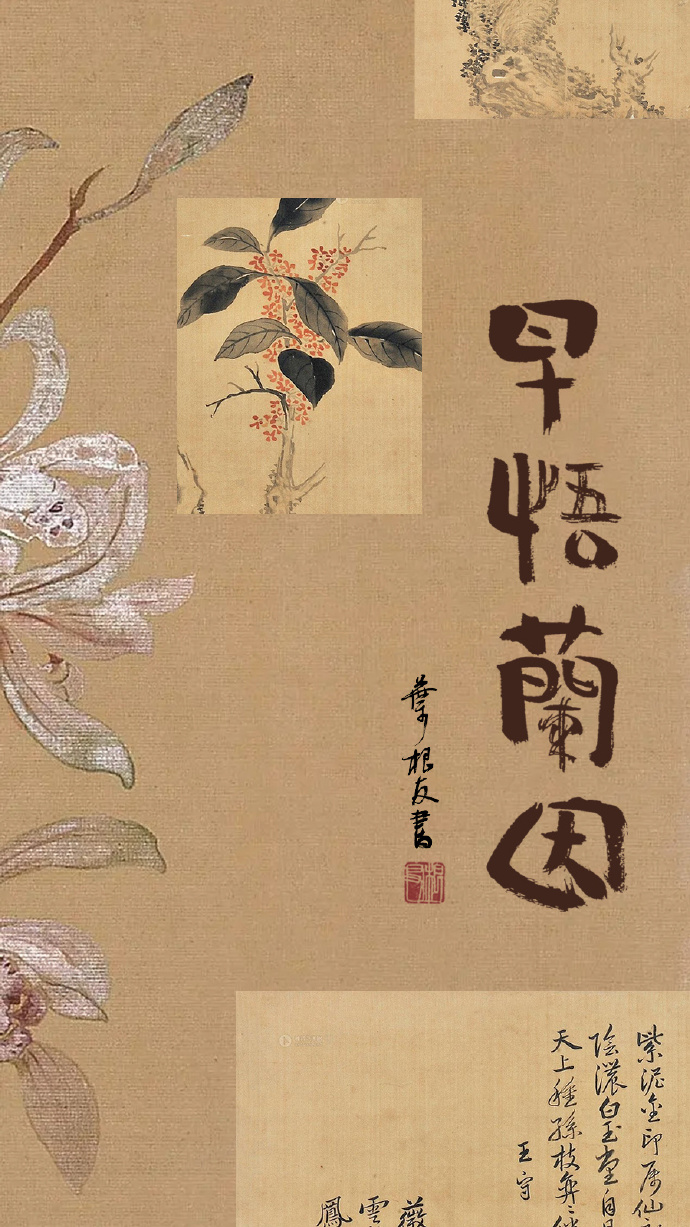 早悟蘭因
葉根友書
紫泥金印屬仙
陰濃白玉堂自
天上種孫枝奕
王守
薇
雲
鳳